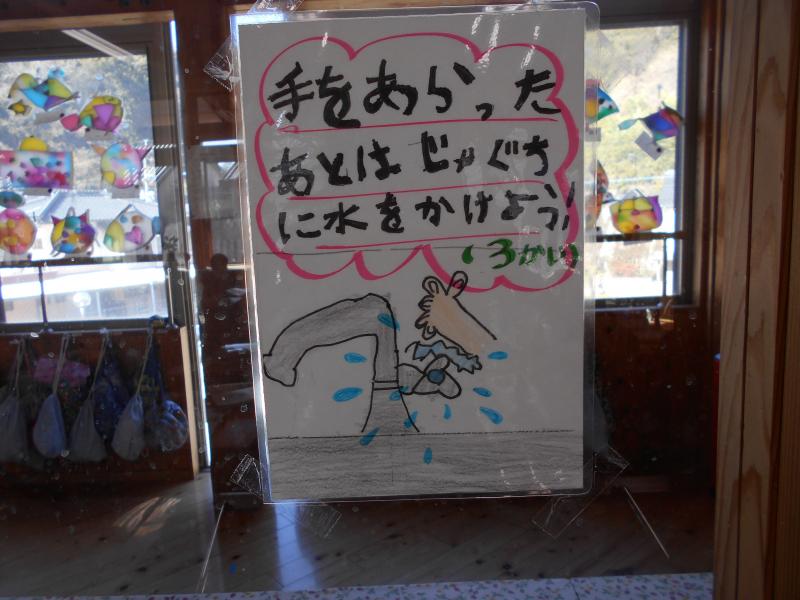 手をあらった
あとは じゃぐち
に水をかけよう!
(3かい)